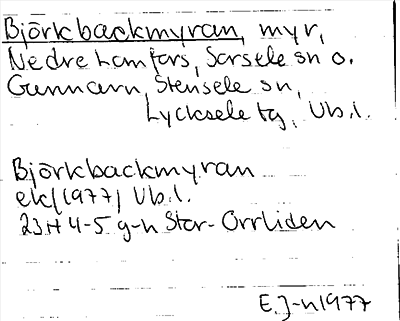 Björkbackmyran, myr,
Nedre Lomfors, Sorsele sn o.
Gunnarn, Stensele sn,
Lycksele tg, Vb.l.
Björkbackmyran
ek/(1977) Vb.l.
23H 4-5 g-h Stor-Orrliden
E.J-n 1977